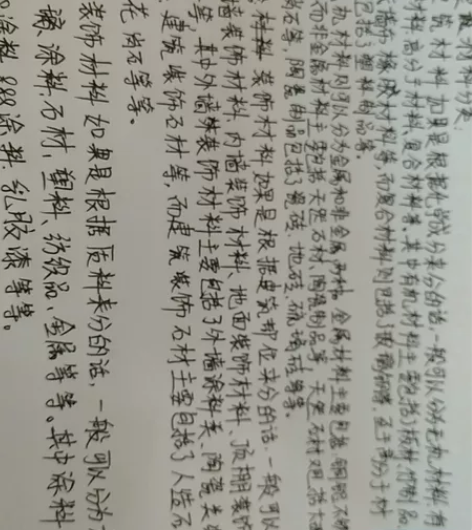 材料分类:
筑材料 如果是根据化学成分来分的话,一般可以分为无机材料 有
材料 高分子材料,复合材料等。其中有机材料主要包括了板材,纺织品
橡胶材料等 而复合材料则包括了玻璃钢等,至于高分子材
包括了塑料制品等。
机材料则可以分为金属和非金属两种。金属材料主要包括 铜铝 不锈
而非金属材料主要包括天然石材、陶瓷制品等,天然石材又包括大
岗石等,陶瓷制品包括了瓷砖、地砖、琉璃砖等。
材料 装饰材料 如果是根据建筑部位来分的话,一般可以
墙装饰材料、内墙装饰材料、地面装饰材料、顶棚装饰
等 其中外墙装饰材料主要包括了外墙涂料类、陶瓷类
建筑装饰石材等,而建筑装饰石材主要包括了人造石
花岗石等等。
装饰材料 如果是根据质料来分的话,一般可以分为
璃、涂料石材,塑料 纺织品、金属等等。其中涂料
涂料 888涂料 乳胶漆等等。